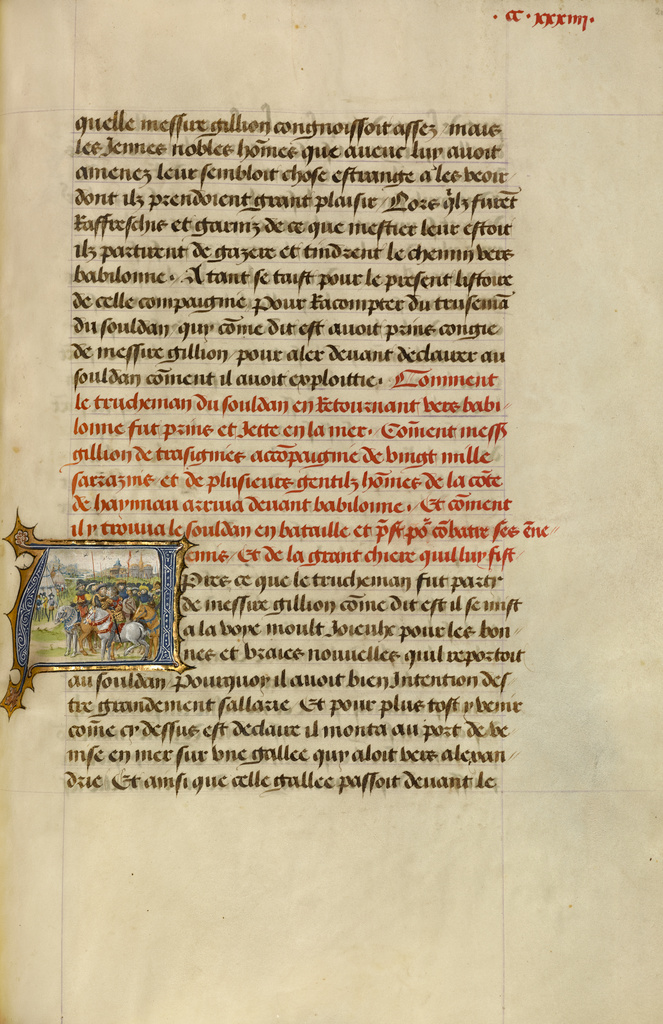 · cc · xxxiiii ·
quelle messire gillion congnoissoit assez mais
les Jennes nobles hom̄es que avenc luy avoit
amenez leur sembloit chose estrange a les veoir
dont ilz prendoient grant plaisir Lors q̄lz furēt
Raffreschis et garniz de ce que mestier leur estoit
ilz partirent de gazere et tindrent le chemin vers
babilonne · A tant se taist pour le present listoire
de celle compaignie Pour Racompter du truseman̄
du souldan quy com̄e dit est avoit prins congie
de messire gillion pour aler devant declairer au
souldan com̄ent il avoit exploittie · Comment
le trucheman du souldan en Retournant vers babi-
lonne fut prins et Jette en la mer · Com̄ent mess̄
gillion de trasignies acco̅paignie de vingt mille
sarrazins et de plusieurs gentilz hom̄es de la co̅te
de haynnau arriva devant babilonne · Et com̄ent
il y trouva le souldan en bataille et p̄st po᷑ co̅batre ses e̅ne-
emis Et de la grant chiere quil luy fist
Pres ce que le trucheman fut party
de messire gillion com̄e dit est il se mist
a la voye moult Joieulx pour les bon-
nes et vraies nouvelles quil reportoit
au souldan Pourquoy il avoit bien Intention des-
tre grandement sallarie Et pour plus tost y venir
com̄e cy dessus est declaire il monta au port de ve-
nise en mer sur une gallee quy aloit vers alexan-
drie Et ainsi que celle gallee passoit devant le